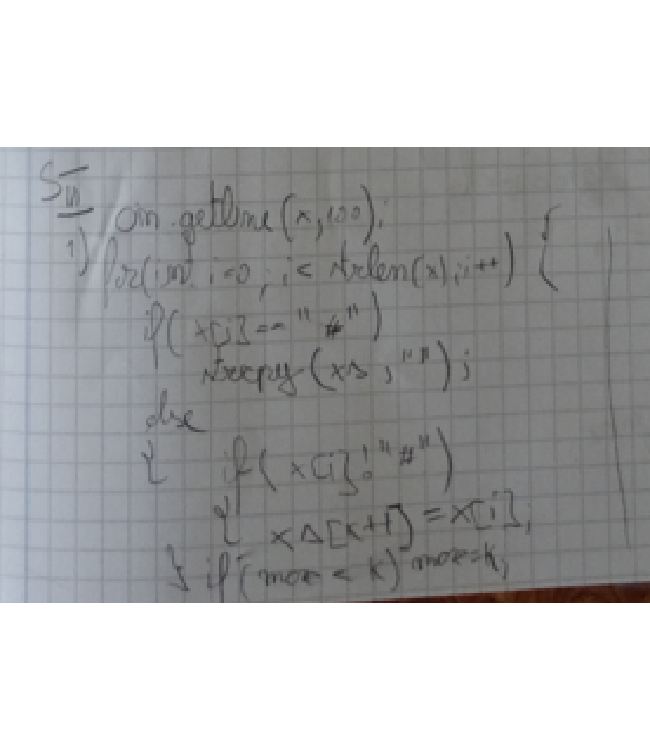 SIII
1) cin.getline(x,100);
for(int i=0; i< strlen(x);i++) {
if( x[i]==" # ")
strcpy(xs,"");
else
{ if( x[i]!"#")
{ xs[k++]=x[i];
} if(max < k) max=k;